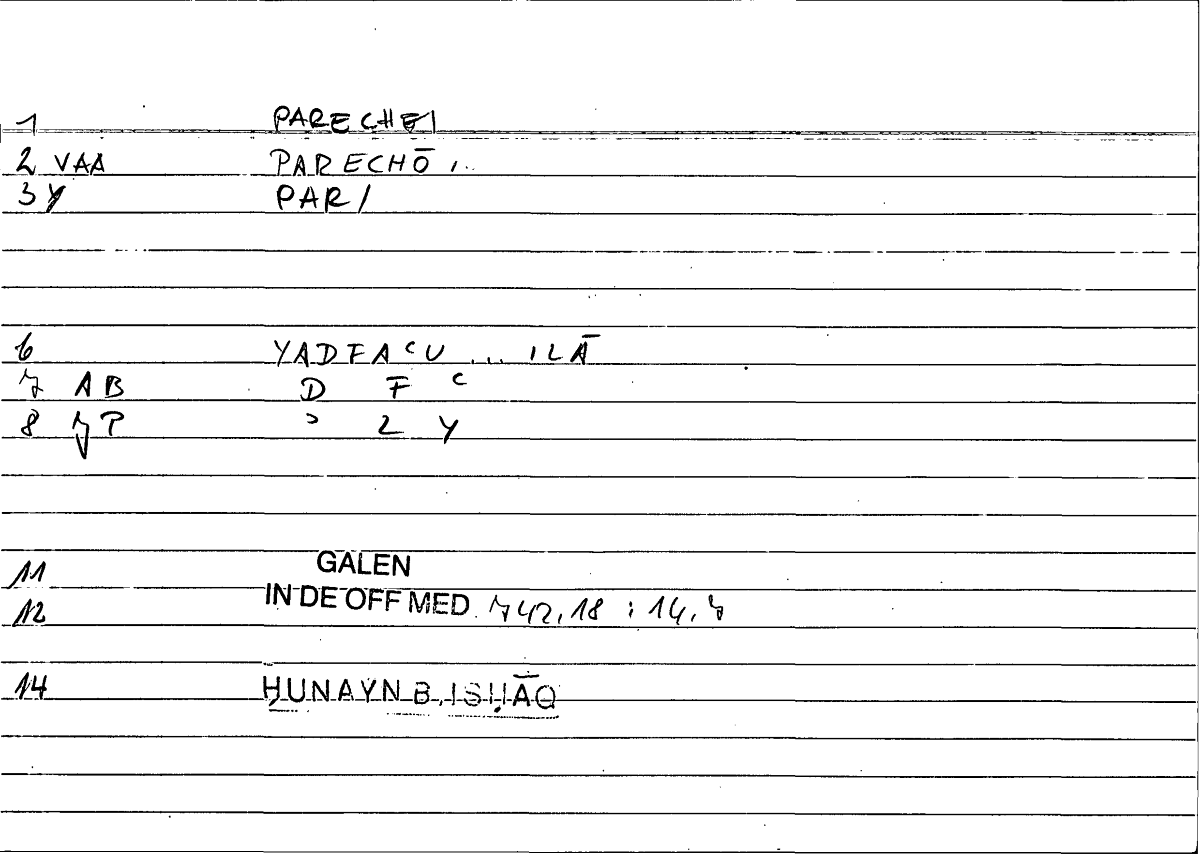 1 PARECHEI
2 VAA PARECHŌ ...
3 Y PAR/
6 YADFAʿU ... ILĀ
7 AB D F ʿ
8 7P ʾ 2 Y
11 GALEN
12 IN DE OFF MED 742,18 : 14,7
14 ḤUNAYN B. ISḤĀQ